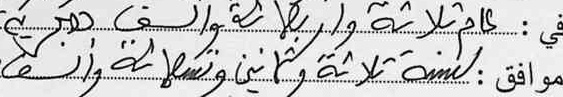 في : عام ثلاثة وأربعمائة وألف هجرية
موافق : لسنة ثلاثة وثمانين وتسعمائة وألف